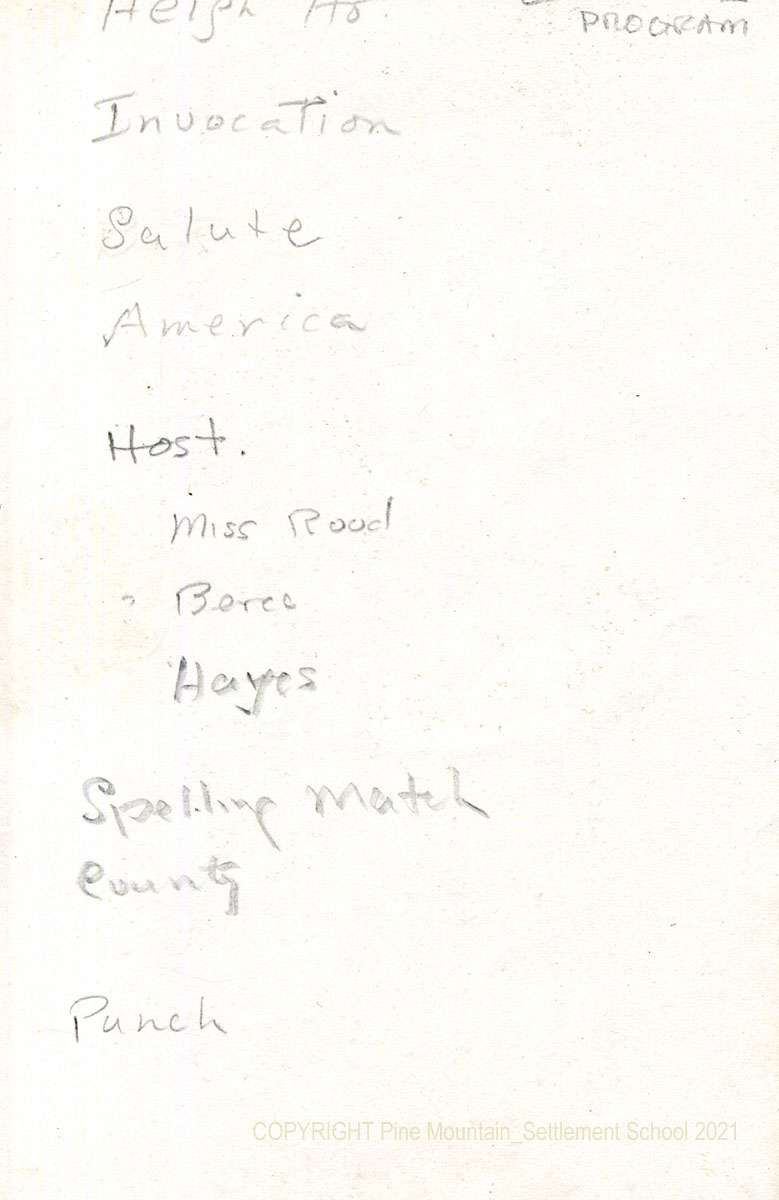 Heigh Ho
PROGRAM
Invocation
Salute
America
Host.
Miss Rood
Berea
Hayes
Spelling Match
County
Punch
COPYRIGHT Pine Mountain_Settlement School 2021